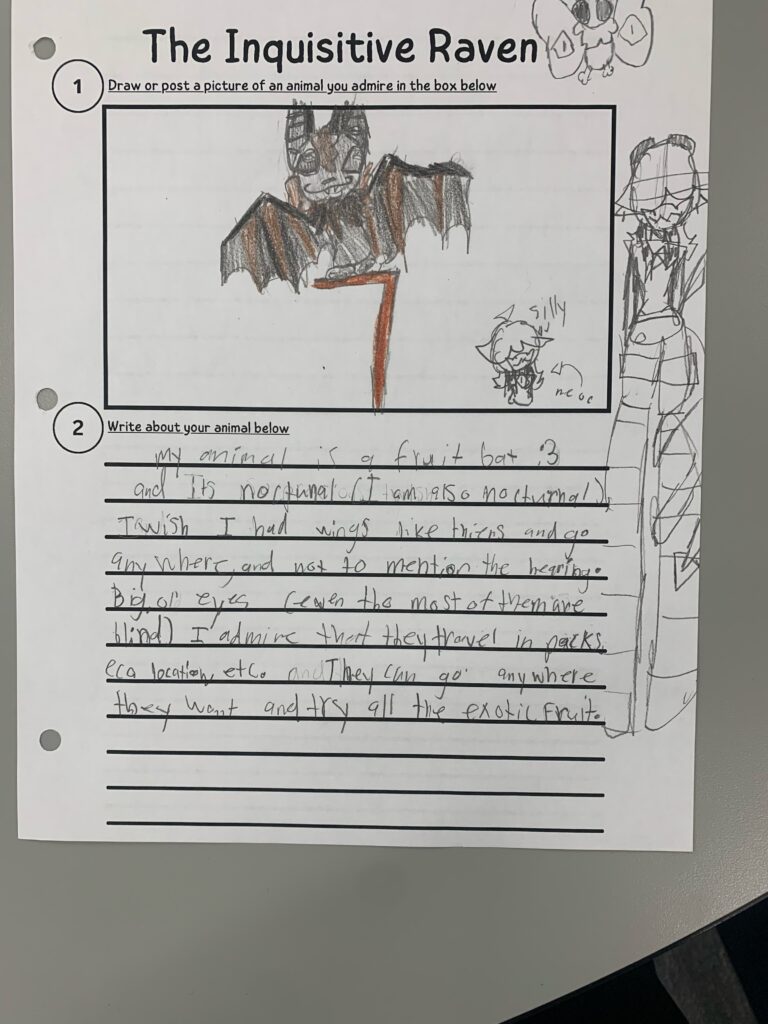 The Inquisitive Raven
1
Draw or post a picture of an animal you admire in the box below
silly
2
Write about your animal below
My animal is a fruit bat :3
and Its nocturnal (I am also nocturnal),
I wish I had wings like thiers and go
anywhere, and not to mention the hearing.
Big ol' eyes (even tho most of them are
blind) I admire that they travel in packs,
eco location, etc. and They can go anywhere
they want and try all the exotic fruit.